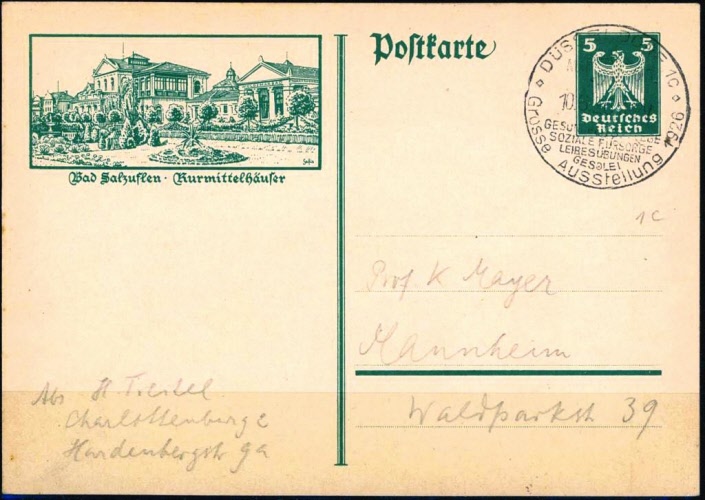 Postkarte
5 5
Deutsches
Reich
DÜSSELDORF 1c
Grosse Ausstellung 1926
GESUNDHEITSPFLEGE
SOZIALE FÜRSORGE
LEIBESÜBUNGEN
GESOLEI
Bad Salzuflen · Kurmittelhäuser
1c
Prof. K Mayer
Mannheim
Waldparkstr 39
Abs H Treitel
Charlottenburg 2
Hardenbergstr 9a